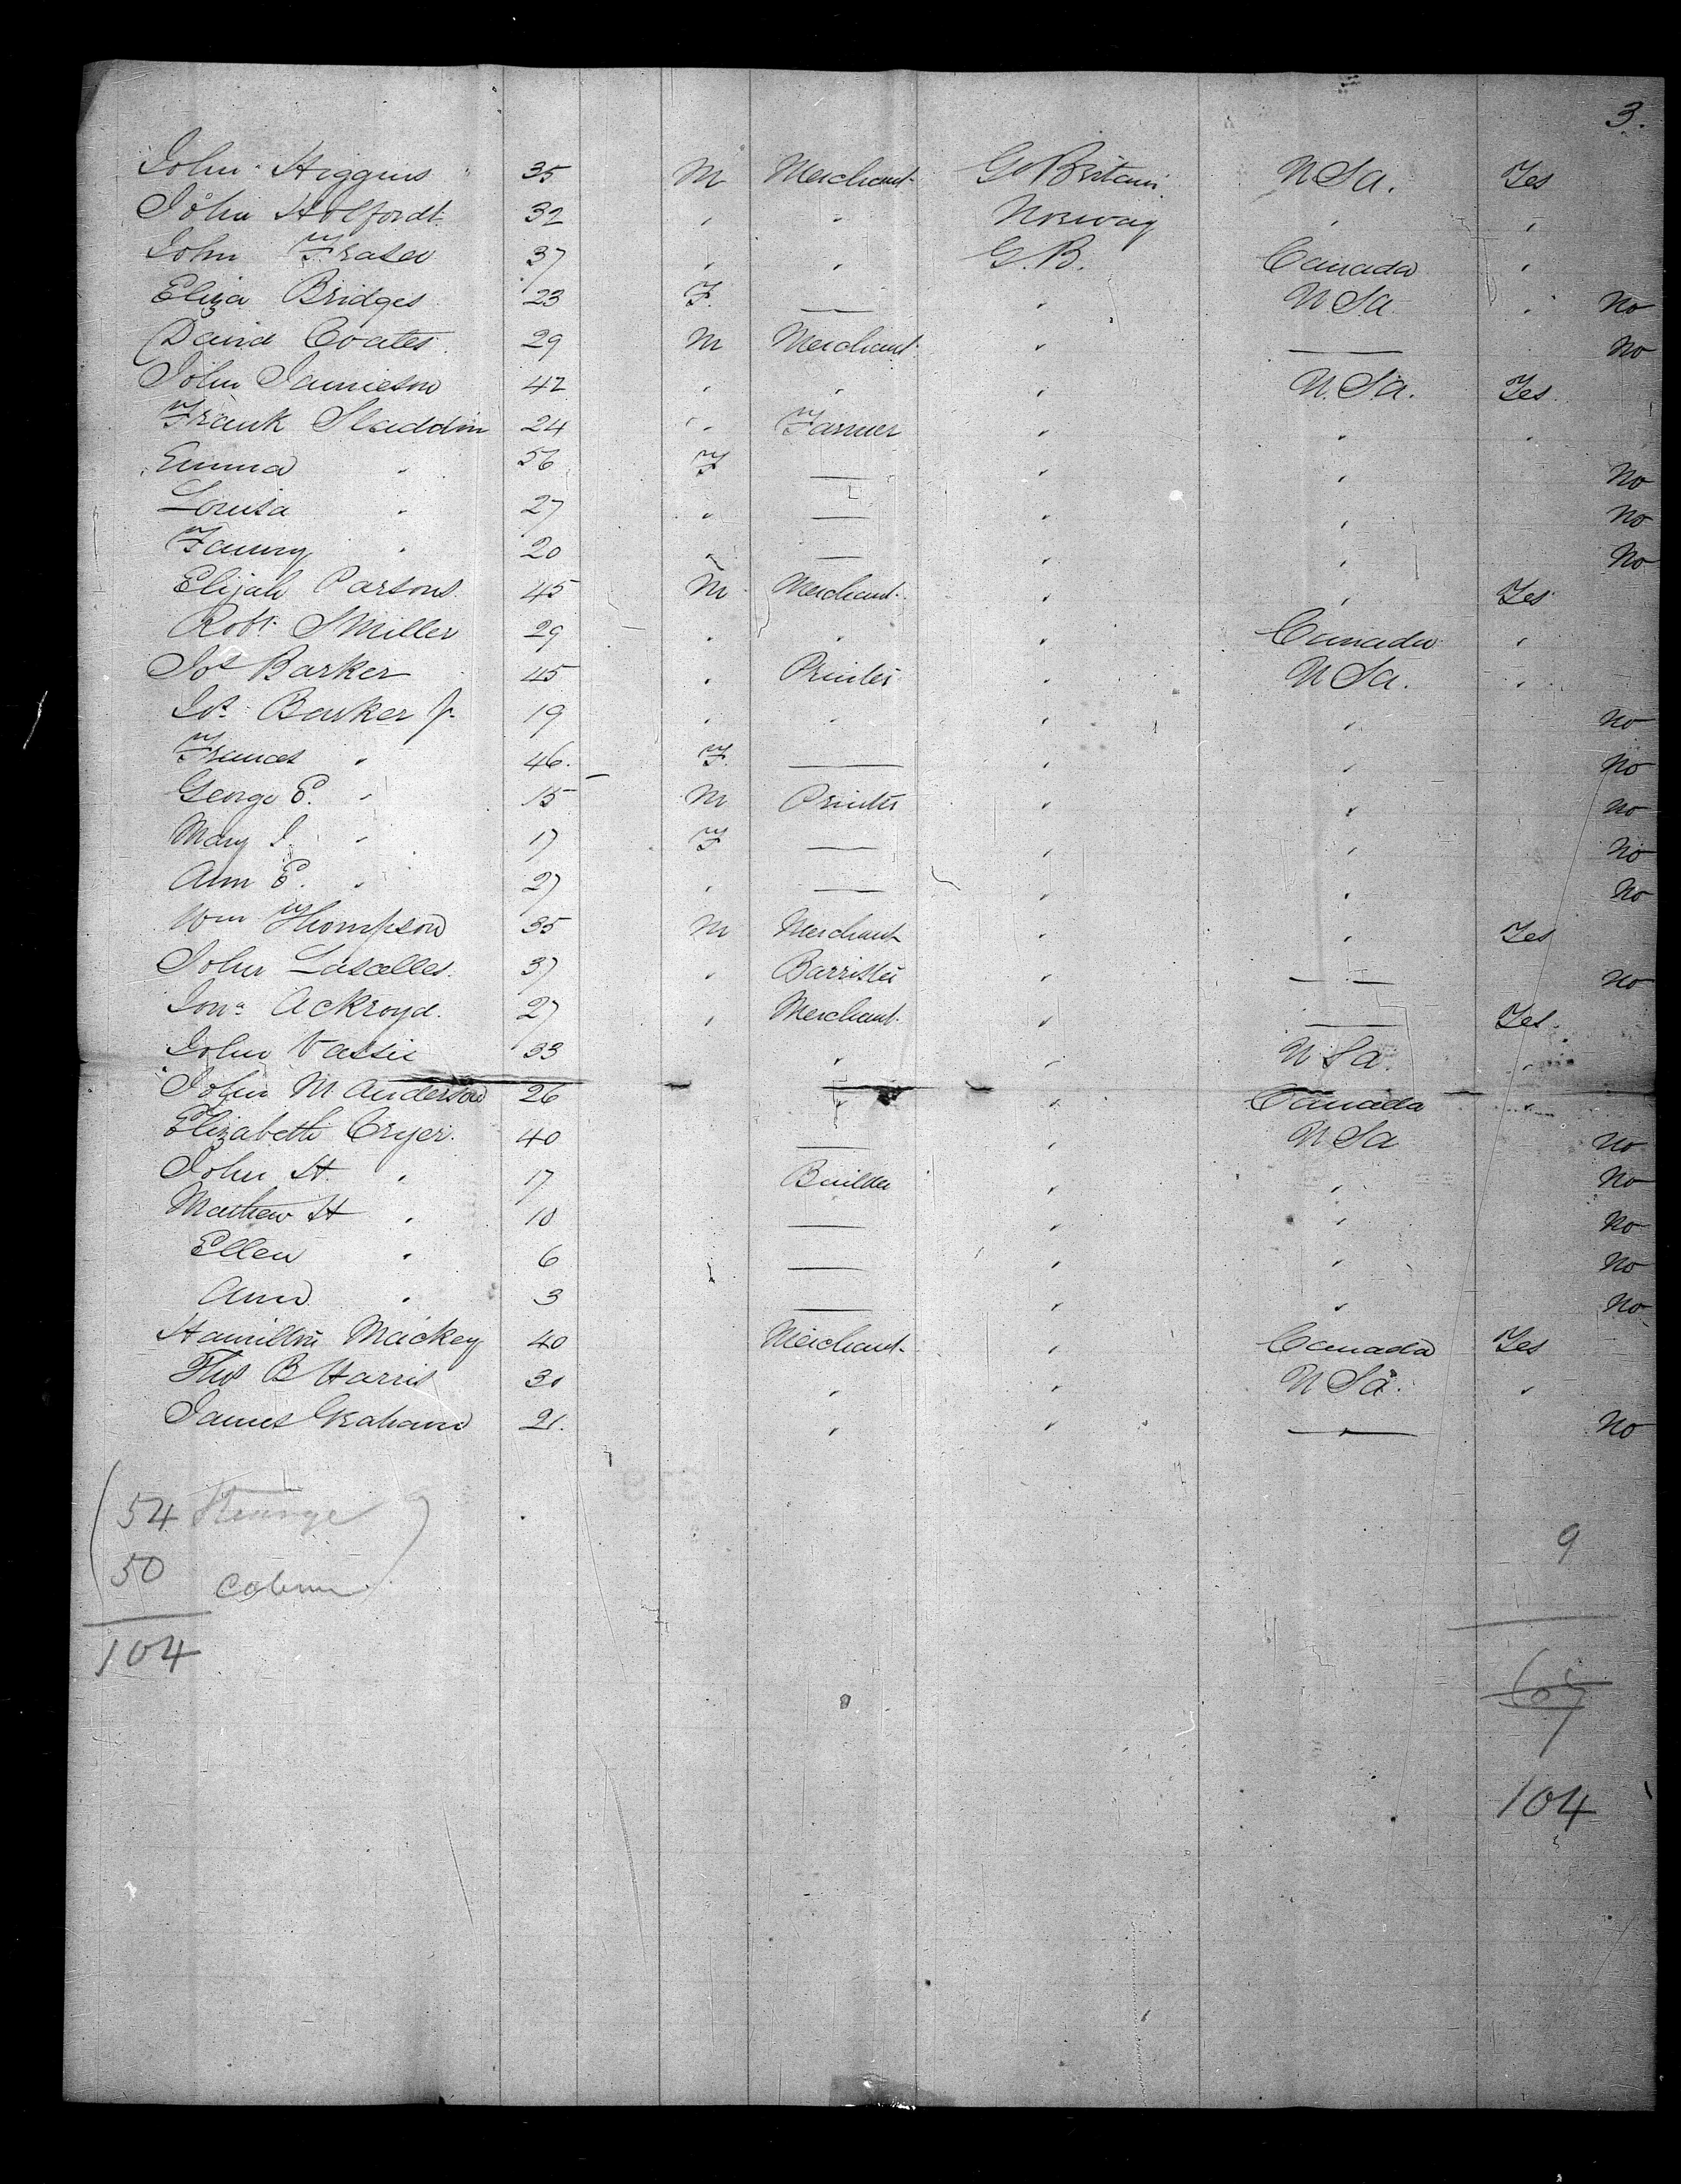 3.
John Higgins 35 M Merchant Gt Britain U Sa. Yes
John Holfordt 32 " " Norway " "
John Fraser 37 " " G.B. Canada "
Eliza Bridges 23 F. — " U Sa " No
David Coates 29 M Merchant " — No
John Jamieson 42 " " " U. Sa. Yes
Frank Sladdin 24 " Farmer " " "
Emma " 56 F — " " No
Louisa " 27 " — " " No
Fanny " 20 " — " " No
Elijah Parsons 45 M Merchant " " Yes
Robt. S Miller 29 " " " Canada "
Jos Barker 45 " Printer " U Sa. "
Jos Barker Jr 19 " " " " No
Frances " 46. F. — " " No
George E. " 15 M Printer " " No
Mary J. " 17 F — " " No
Ann E. " 27 " — " " No
Wm Thompson 35 M Merchant " " Yes
John Lascelles. 37 " Barrister " — " — No
Jona Ackroyd. 27 " Merchant " — Yes
John Vassie 33 " " U Sa. "
John M. Anderson 26 " " Canada "
Elizabeth Cryer. 40 — " U Sa No
John H. " 17 Builder " " No
Mathew H " 10 — " " No
Ellen " 6 — " " No
Ann " 3 — " " No
Hamilton Mackey 40 Merchant " Canada Yes
Thos B Harris 30 " " U Sa. "
James Graham 21. " " — " — No
(54 )
50
104
9
67
104